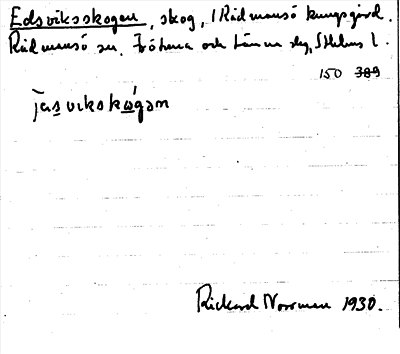 Edsviksskogen, skog, i Rådmansö kungsgård.
Rådmansö sn. Frötuna och Länna slg, Sthlms l.
150 389
jasvikskógan
Rickard Norrman 1930.